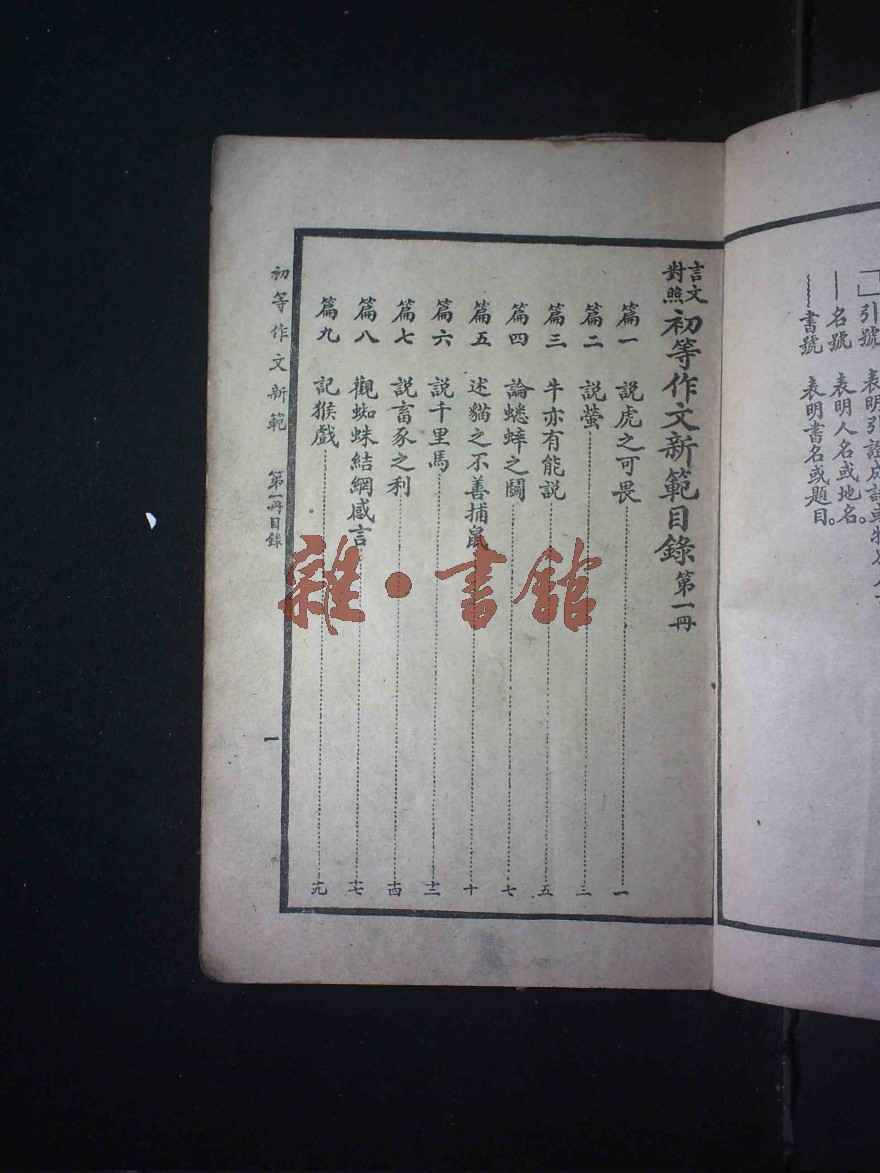 「」引號 表明引證成語或特
—名號 表明人名或地名。
﹏﹏書號 表明書名或題目。
言文對照初等作文新範目錄 第一冊
篇一 說虎之可畏……一
篇二 說螢……三
篇三 牛亦有能說……五
篇四 論蟋蟀之鬬……七
篇五 述貓之不善捕鼠……十
篇六 說千里馬……十二
篇七 說畜豕之利……十四
篇八 觀蜘蛛結網感言……十七
篇九 記猴戲……十九
初等作文新範 第一冊目錄
一
雜·書館